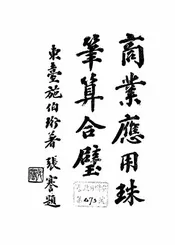 商業應用珠
筆算合璧
東臺施伯珩著 張謇題